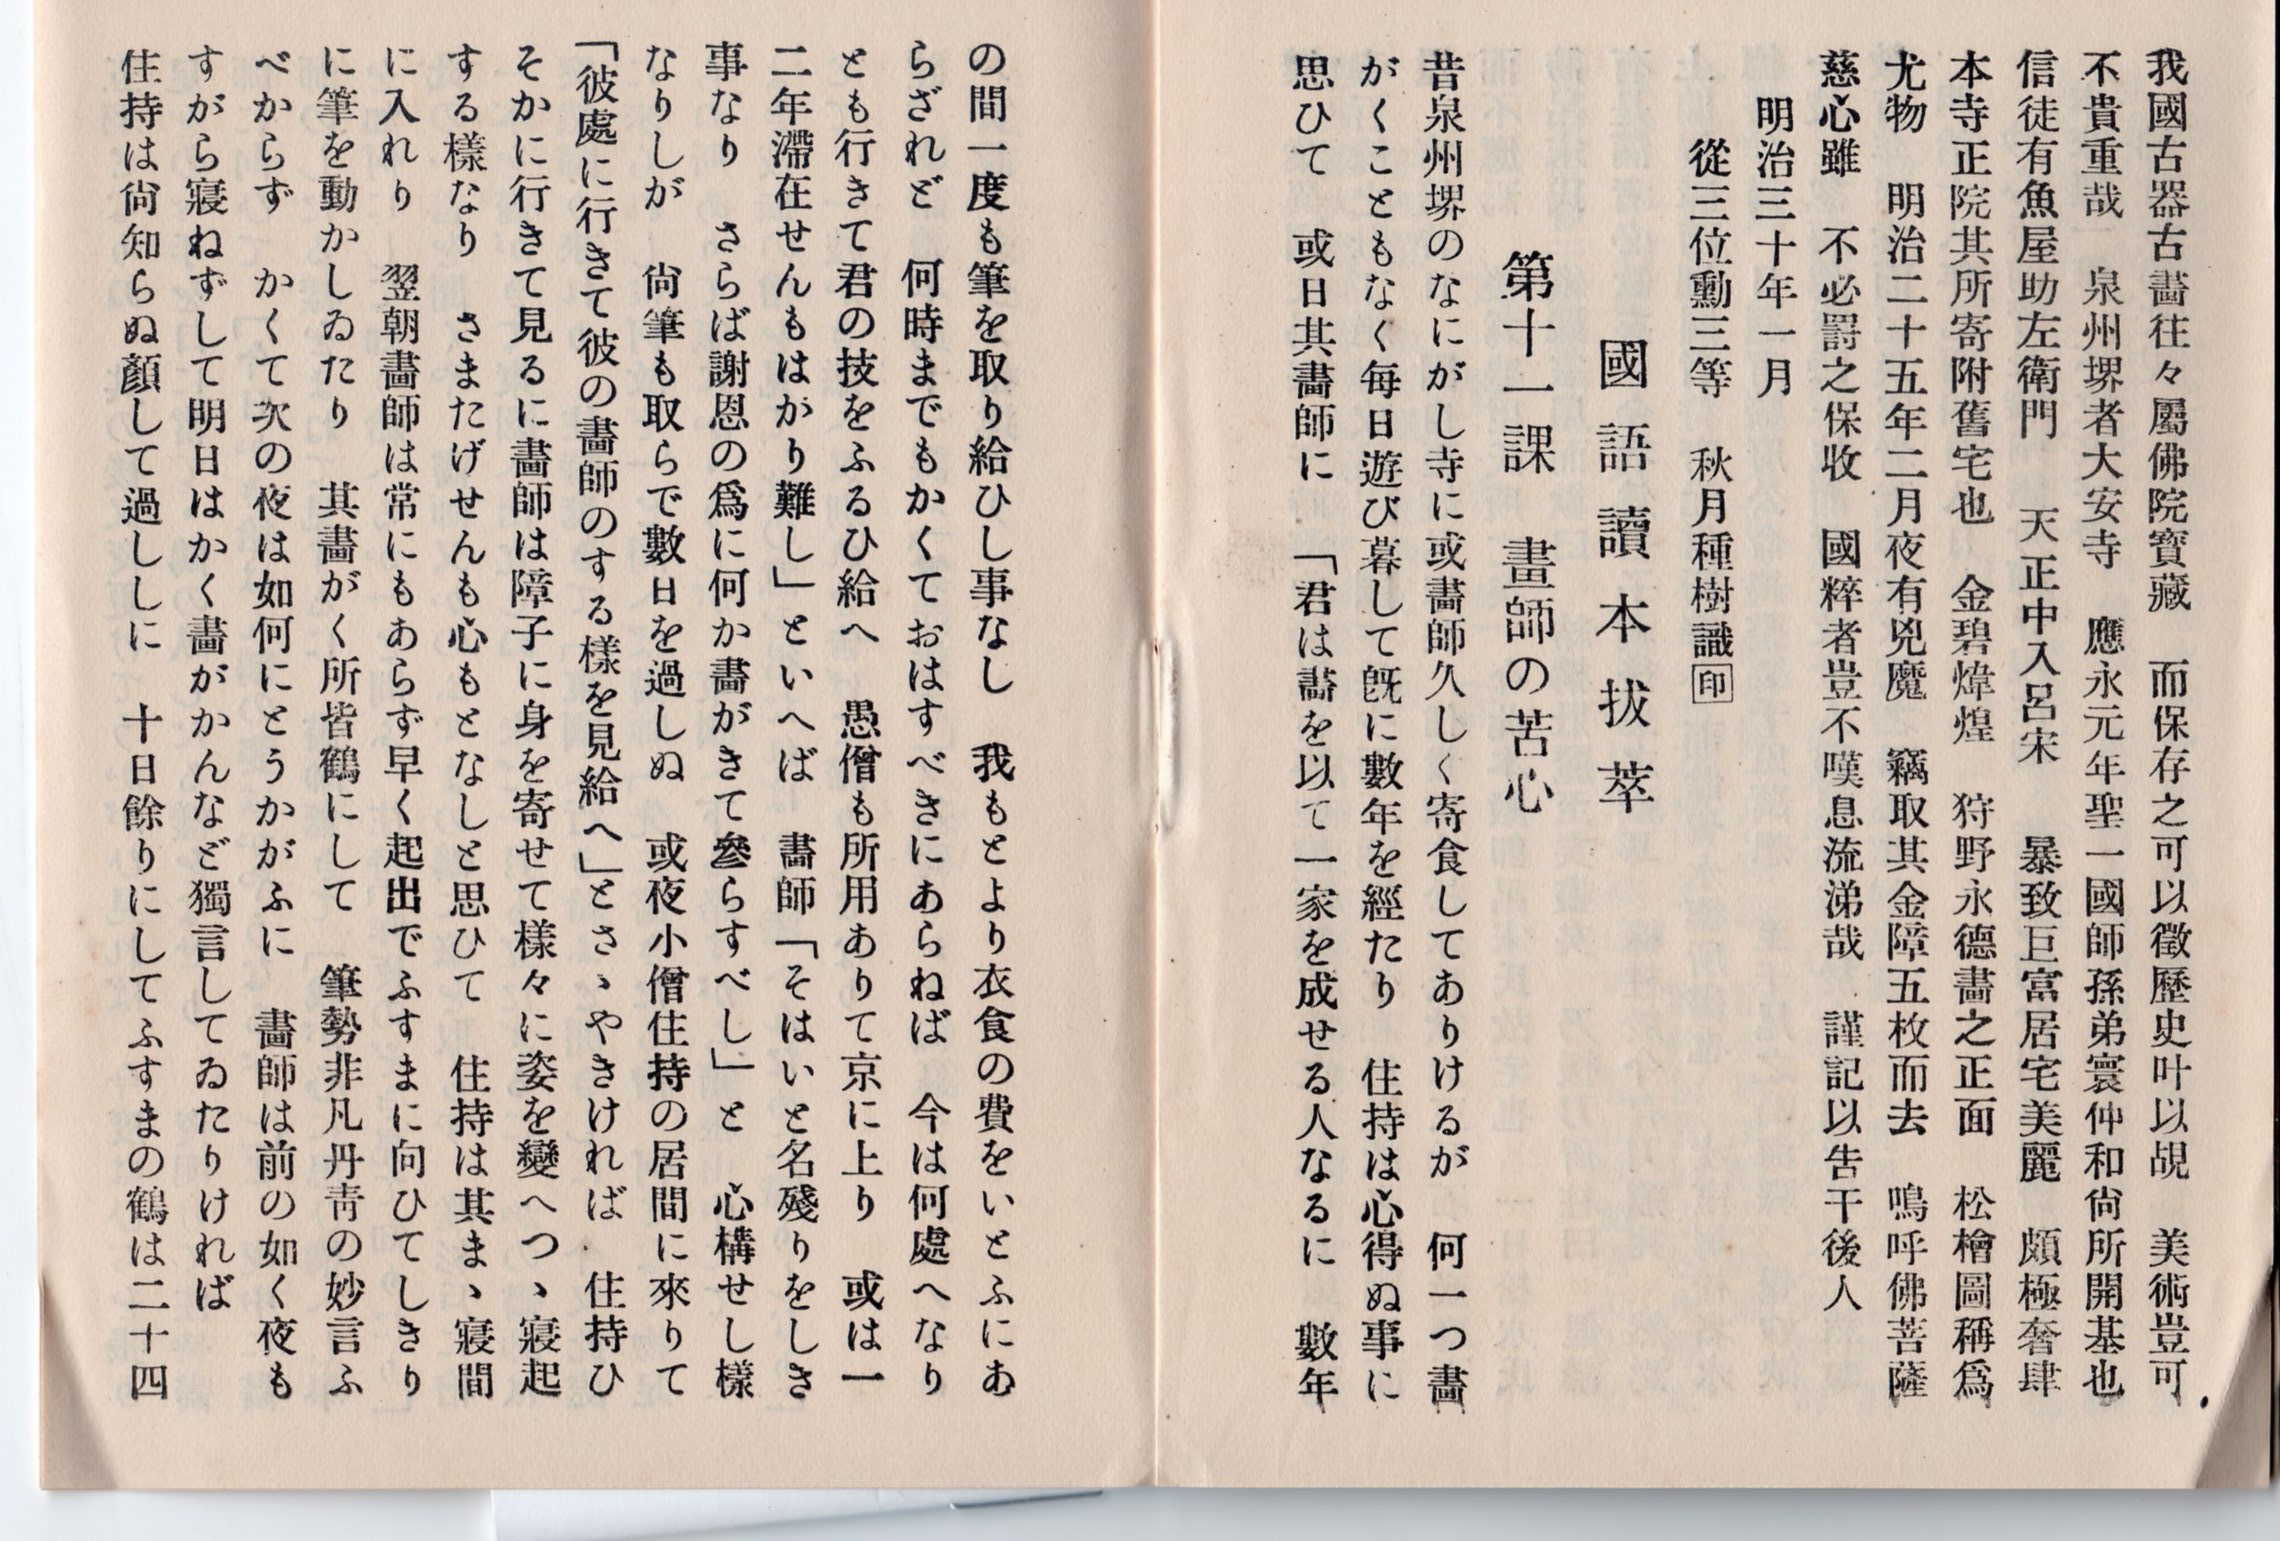 我國古器古畵往々屬佛院寳藏　而保存之可以徵歷史叶以覘　美術豈可
不貴重哉　泉州堺者大安寺　應永元年聖一國師孫弟寰仲和尙所開基也
信徒有魚屋助左衞門　天正中入呂宋　暴致巨富居宅美麗　頗極奢肆
本寺正院其所寄附舊宅也　金碧煒煌　狩野永德畵之正面　松檜圖稱爲
尤物　明治二十五年二月夜有兇魔　竊取其金障五枚而去　鳴呼佛菩薩
慈心雖　不必罸之保收　國粹者豈不嘆息流涕哉　謹記以吿干後人
明治三十年一月
從三位勳三等　秋月種樹識㊞
國語讀本拔萃
第十一課　畫師の苦心
昔泉州堺のなにがし寺に或畵師久しく寄食してありけるが　何一つ畵
がくこともなく每日遊び暮して旣に數年を經たり　住持は心得ぬ事に
思ひて　或日其畵師に　「君は畵を以て一家を成せる人なるに　數年
の間一度も筆を取り給ひし事なし　我もとより衣食の費をいとふにあ
らざれど　何時までもかくておはすべきにあらねば　今は何處へなり
とも行きて君の技をふるひ給へ　愚僧も所用ありて京に上り　或は一
二年滯在せんもはがり難し」といへば　畵師「そはいと名殘りをしき
事なり　さらば謝恩の爲に何か畵がきて參らすべし」と　心構せし樣
なりしが　尙筆も取らで數日を過しぬ　或夜小僧住持の居間に來りて
「彼處に行きて彼の畵師のする樣を見給へ」とさゝやきければ　住持ひ
そかに行きて見るに畵師は障子に身を寄せて樣々に姿を變へつゝ寢起
する樣なり　さまたげせんも心もとなしと思ひて　住持は其まゝ寢間
に入れり　翌朝畵師は常にもあらず早く起出でふすまに向ひてしきり
に筆を動かしゐたり　其畵がく所皆鶴にして　筆勢非凡丹靑の妙言ふ
べからず　かくて次の夜は如何にとうかがふに　畵師は前の如く夜も
すがら寢ねずして明日はかく畵がかんなど獨言してゐたりければ
住持は尙知らぬ顏して過ししに　十日餘りにしてふすまの鶴は二十四